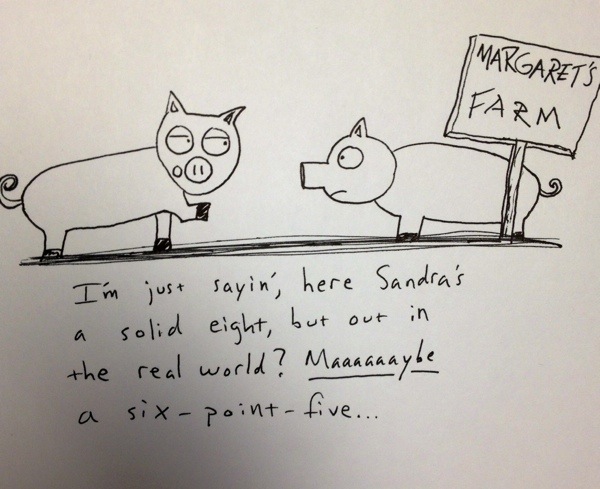 MARGARET'S
FARM
I'm just sayin', here Sandra's
a solid eight, but out in
the real world? Maaaaaaybe
a six-point-five...